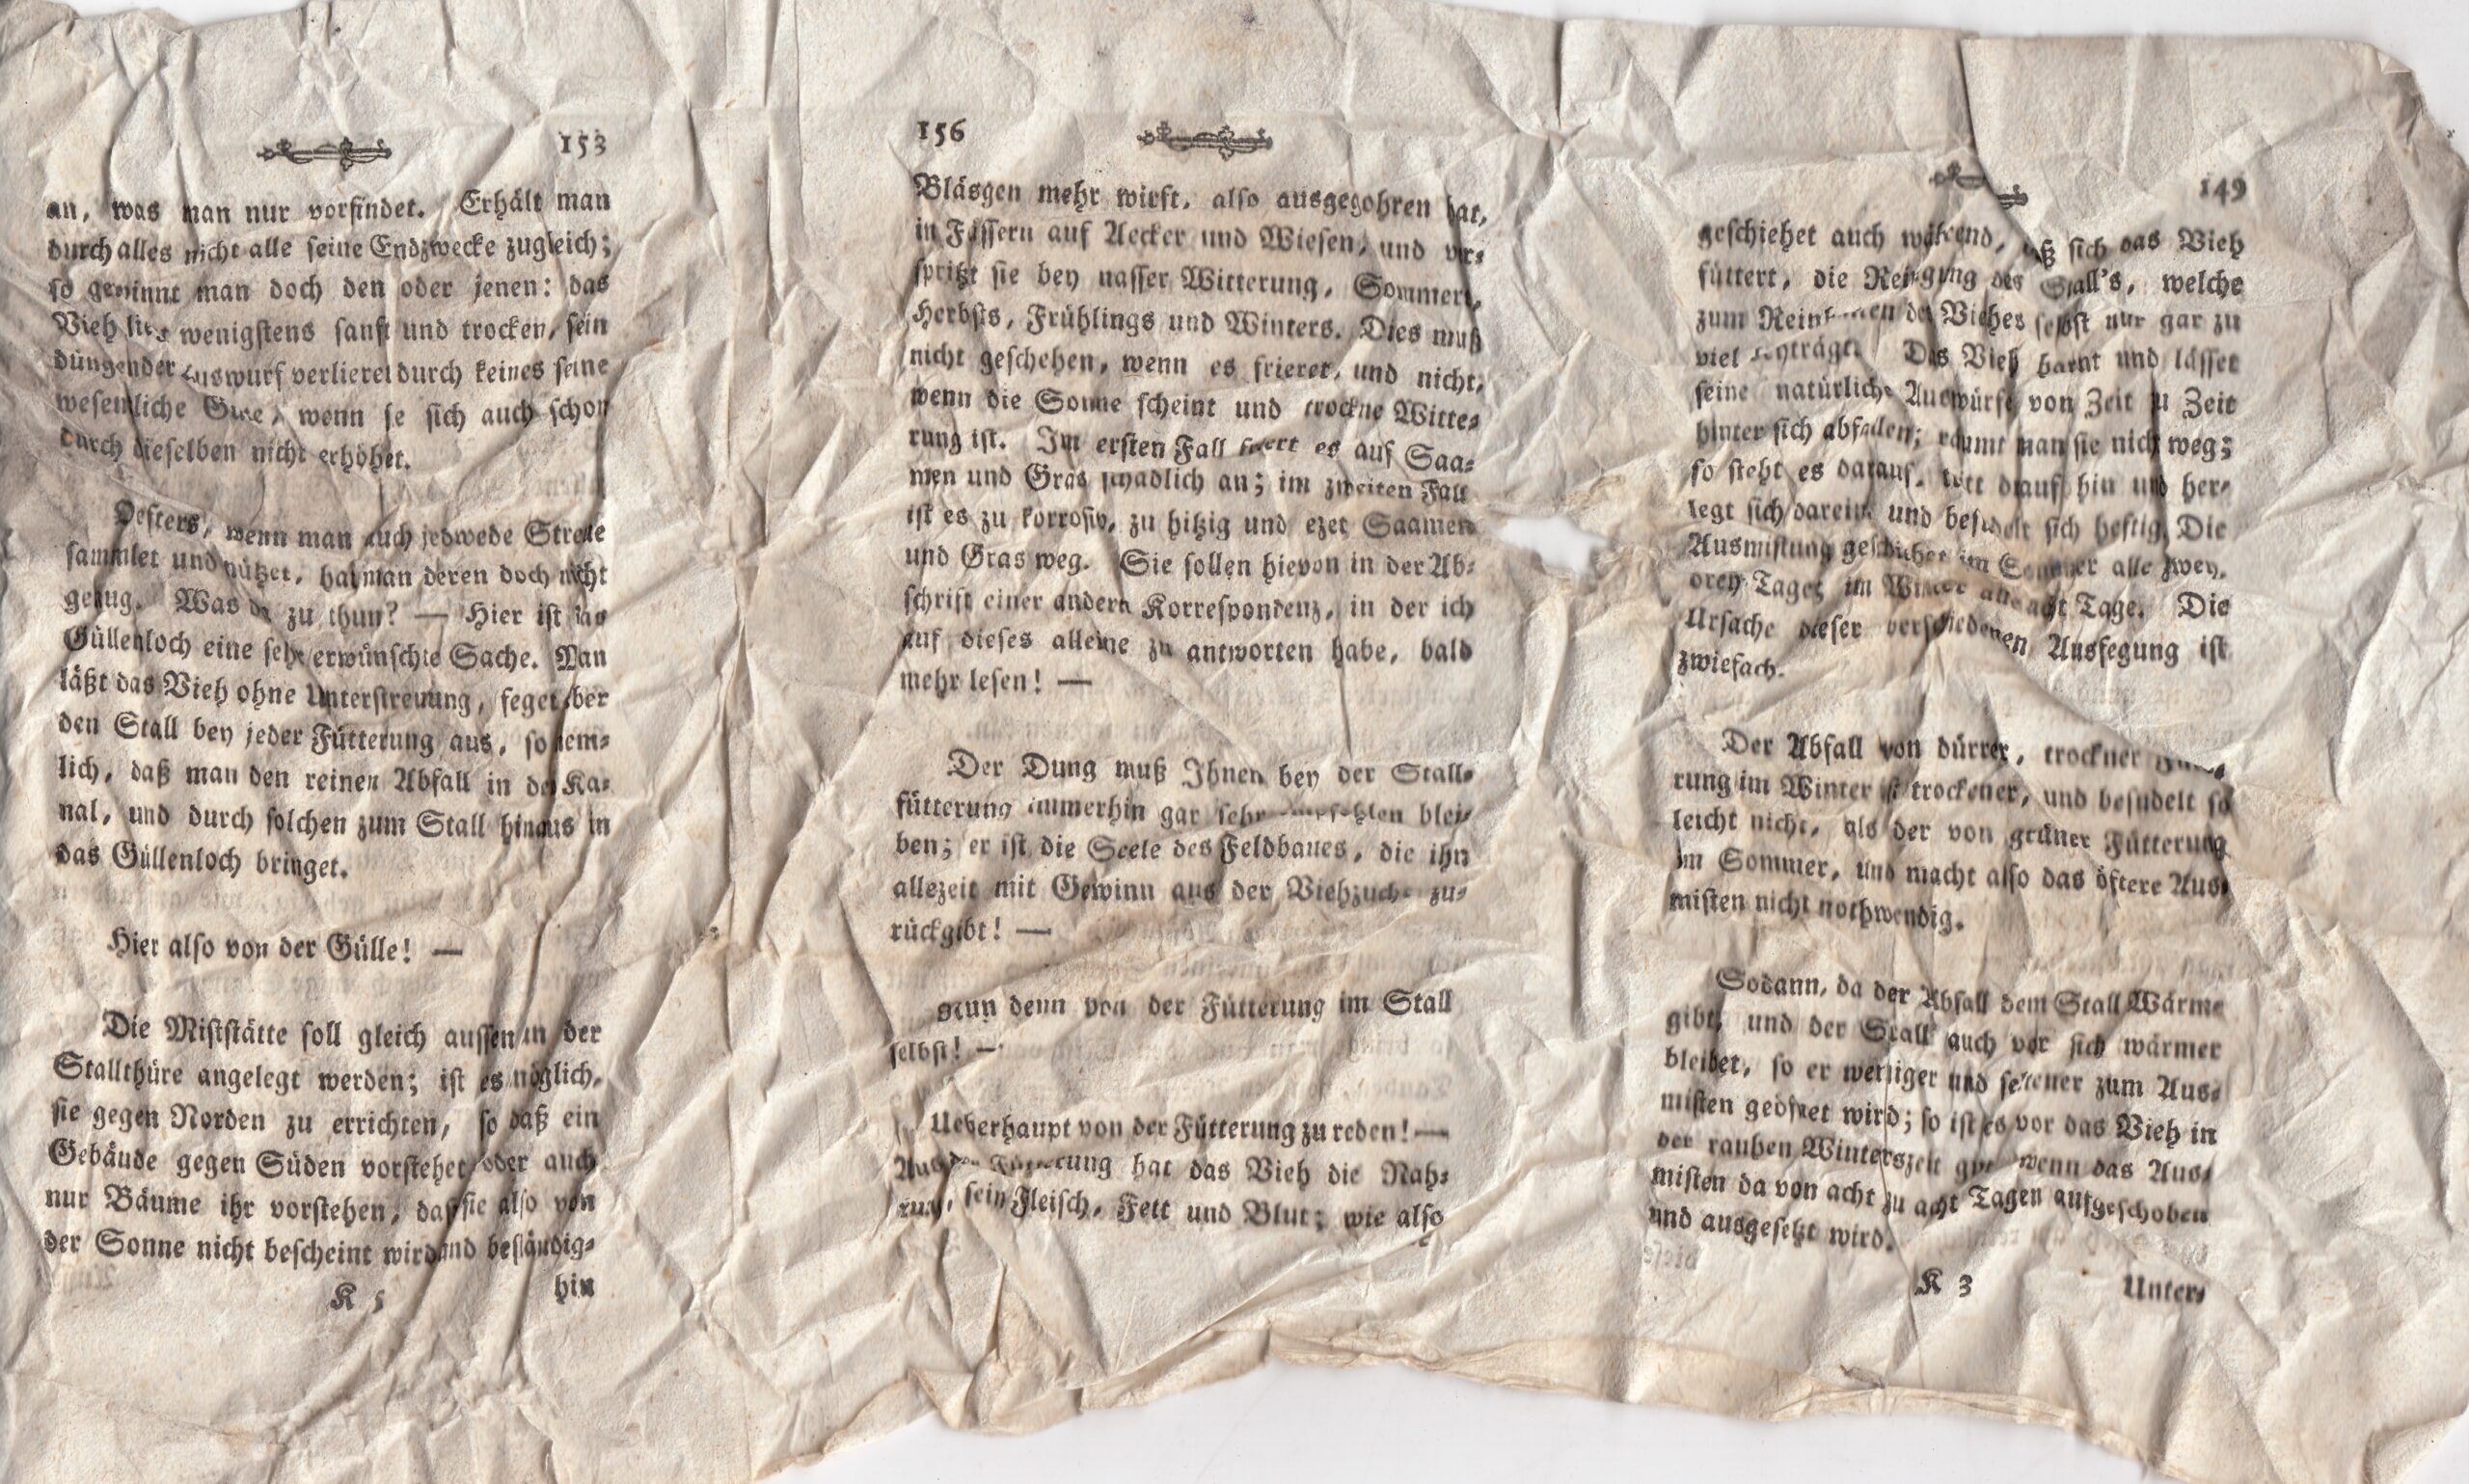 153
an, was man nur vorfindet. Erhält man
durch alles nicht alle seine Endzwecke zugleich;
so gewinnt man doch den oder jenen: das
Vieh wenigstens sanft und trocken, sein
düngender Auswurf verlieret durch keines seine
wesentliche Güte, wenn se sich auch schon
durch dieselben nicht erhöhet.
Oefters, wenn man auch jedwede Streue
sammlet und nützet, hat man deren doch nicht
genug. Was da zu thun? — Hier ist das
Güllenloch eine sehr erwünschte Sache. Man
läßt das Vieh ohne Unterstreuung, feget aber
den Stall bey jeder Fütterung aus, so nem-
lich, daß man den reinen Abfall in den Ka-
nal, und durch solchen zum Stall hinaus in
das Güllenloch bringet.
Hier also von der Gülle! —
Die Miststätte soll gleich aussen an der
Stallthüre angelegt werden; ist es möglich,
sie gegen Norden zu errichten, so daß ein
Gebäude gegen Süden vorstehet oder auch
nur Bäume ihr vorstehen, daß sie also von
der Sonne nicht bescheint wird und beständig-
K 5 hin
156
Bläsgen mehr wirft, also ausgegohren hat,
in Fässern auf Aecker und Wiesen, und ver-
spritzt sie bey nasser Witterung, Sommers,
Herbsts, Frühlings und Winters. Dies muß
nicht geschehen, wenn es frieret, und nicht,
wenn die Sonne scheint und trockne Witte-
rung ist. Im ersten Fall es auf Saa-
men und Gras schädlich an; im zweiten Fall
ist es zu korrosiv, zu hitzig und ezet Saamen
und Gras weg. Sie sollen hievon in der Ab-
schrift einer andern Korrespondenz, in der ich
auf dieses alleine zu antworten habe, bald
mehr lesen! —
Der Dung muß Ihnen bey der Stall-
fütterung immerhin gar sehr empfohlen blei-
ben; er ist die Seele des Feldbaues, die ihn
allezeit mit Gewinn aus der Viehzucht zu-
rückgibt! —
Nun denn von der Fütterung im Stall
selbst! —
Ueberhaupt von der Fütterung zu reden! —
Aus der Fütterung hat das Vieh die Nah-
rung, sein Fleisch, Fett und Blut; wie also
149
geschiehet auch während, daß sich das Vieh
füttert, die Reinigung des Stall's, welche
zum des Viehes selbst nur gar zu
viel beyträgt. Das Vieh harnt und lässet
seine natürliche Auswürfe von Zeit zu Zeit
hinter sich abfallen; räumt man sie nicht weg;
so steht es darauf, tritt drauf hin und her,
legt sich darein, und besudelt sich heftig. Die
Ausmistung geschiehet im Sommer alle zwey,
drey Tage, im Winter alle acht Tage. Die
Ursache dieser verschiedenen Ausfegung ist
zwiefach.
Der Abfall von dürrer, trockner Fütte-
rung im Winter ist trockener, und besudelt so
leicht nicht, als der von grüner Fütterung
im Sommer, und macht also das öftere Aus-
misten nicht nothwendig.
Sodann, da der Abfall dem Stall Wärme
gibt, und der Stall auch vor sich wärmer
bleibet, so er weniger und seltener zum Aus-
misten geöfnet wird; so ist es vor das Vieh in
der rauhen Winterszeit gut wenn das Aus-
misten da von acht zu acht Tagen aufgeschoben
und ausgesetzt wird.
K 3 Unter-